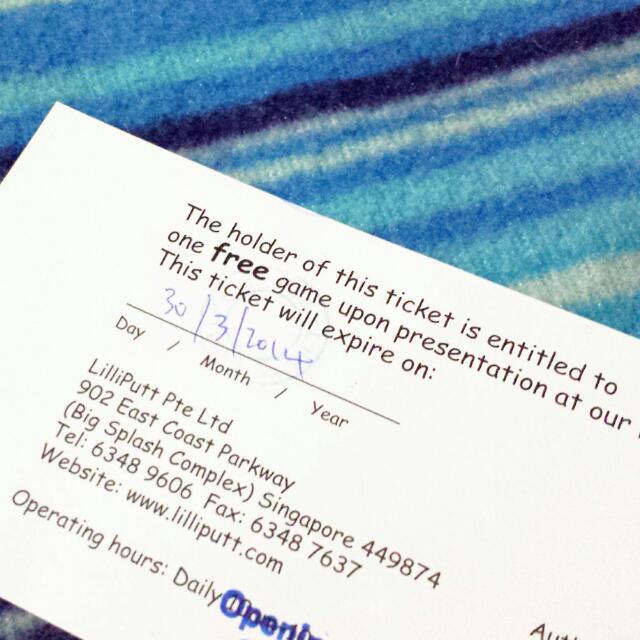 The holder of this ticket is entitled to
one free game upon presentation at our
This ticket will expire on:
30/3/2014
Day / Month / Year
LilliPutt Pte Ltd
902 East Coast Parkway
(Big Splash Complex) Singapore 449874
Tel: 6348 9606 Fax: 6348 7637
Website: www.lilliputt.com
Operating hours: Daily